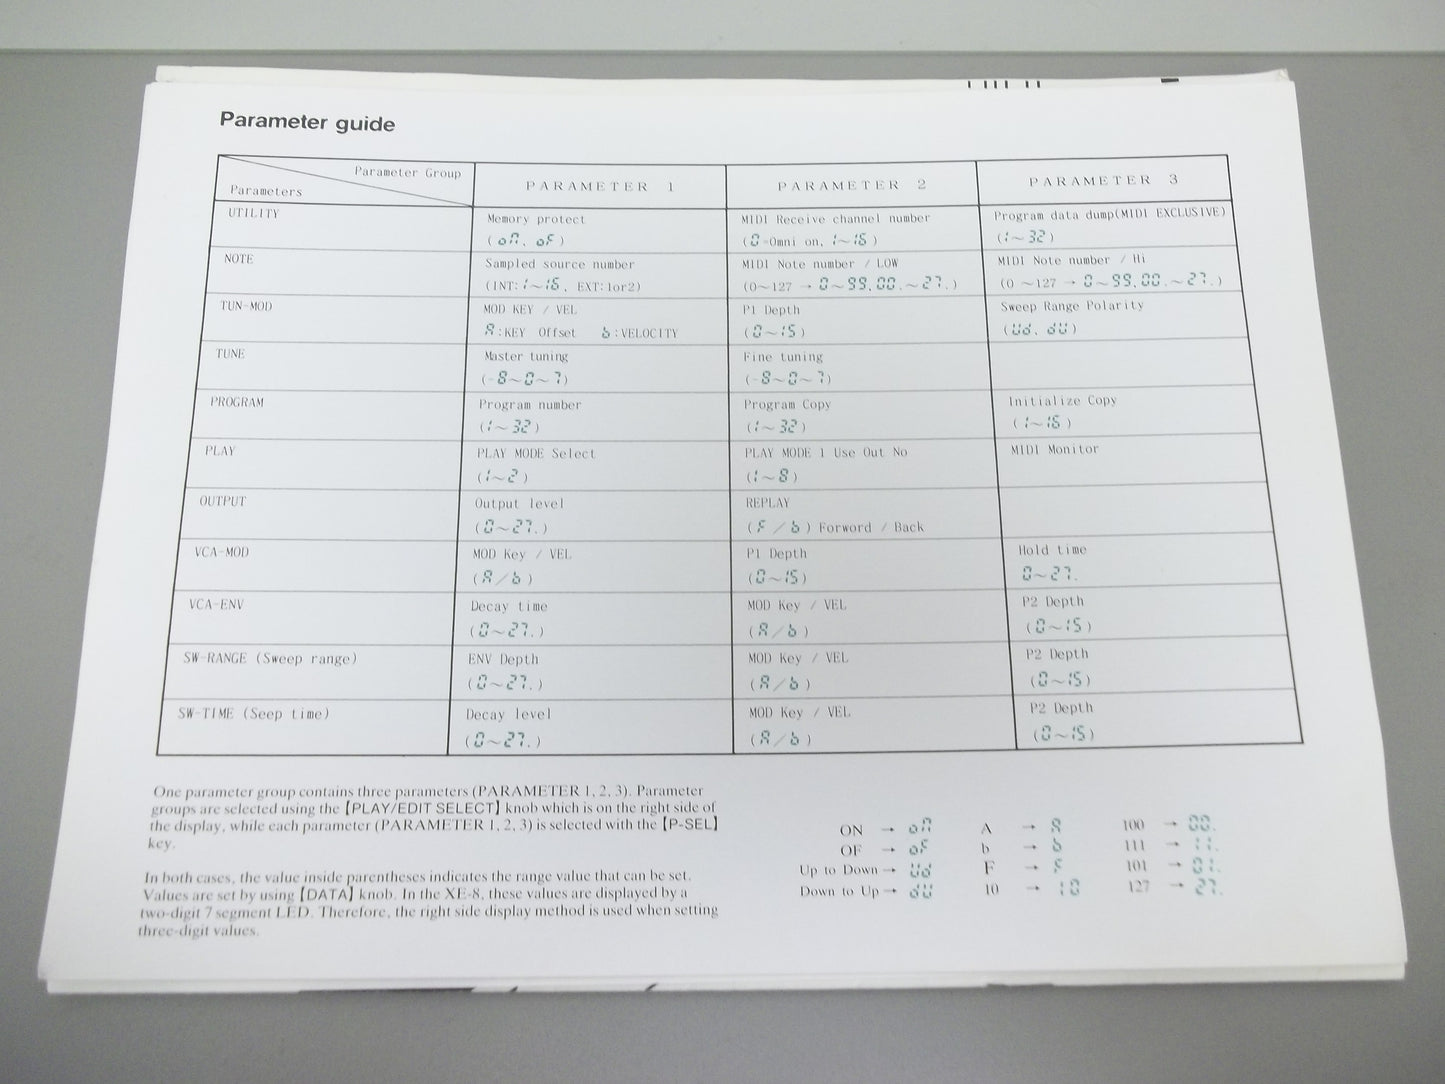 Parameter guide
Parameter Group
Parameters
PARAMETER 1
PARAMETER 2
PARAMETER 3
UTILITY
Memory protect
(on, oF)
MIDI Receive channel number
(0=Omni on, 1~16)
Program data dump(MIDI EXCLUSIVE)
(1~32)
NOTE
Sampled source number
(INT:1~16, EXT:1or2)
MIDI Note number / LOW
(0~127 → 0~99,00.~27.)
MIDI Note number / Hi
(0 ~127 → 0~99,00.~27.)
TUN-MOD
MOD KEY / VEL
A:KEY Offset b:VELOCITY
P1 Depth
(0~15)
Sweep Range Polarity
(Ud, dU)
TUNE
Master tuning
(-8~0~7)
Fine tuning
(-8~0~7)
PROGRAM
Program number
(1~32)
Program Copy
(1~32)
Initialize Copy
(1~16)
PLAY
PLAY MODE Select
(1~2)
PLAY MODE 1 Use Out No
(1~8)
MIDI Monitor
OUTPUT
Output level
(0~27.)
REPLAY
(F/b) Forword / Back
VCA-MOD
MOD Key / VEL
(A/b)
P1 Depth
(0~15)
Hold time
0~27.
VCA-ENV
Decay time
(0~27.)
MOD Key / VEL
(A/b)
P2 Depth
(0~15)
SW-RANGE (Sweep range)
ENV Depth
(0~27.)
MOD Key / VEL
(A/b)
P2 Depth
(0~15)
SW-TIME (Seep time)
Decay level
(0~27.)
MOD Key / VEL
(A/b)
P2 Depth
(0~15)
One parameter group contains three parameters (PARAMETER 1, 2, 3). Parameter
groups are selected using the【PLAY/EDIT SELECT】knob which is on the right side of
the display, while each parameter (PARAMETER 1, 2, 3) is selected with the【P-SEL】
key.
In both cases, the value inside parentheses indicates the range value that can be set.
Values are set by using【DATA】knob. In the XE-8, these values are displayed by a
two-digit 7 segment LED. Therefore, the right side display method is used when setting
three-digit values.
ON → on A → A 100 → 00.
OF → oF b → b 111 → 11.
Up to Down → Ud F → F 101 → 01.
Down to Up → dU 10 → 10 127 → 27.